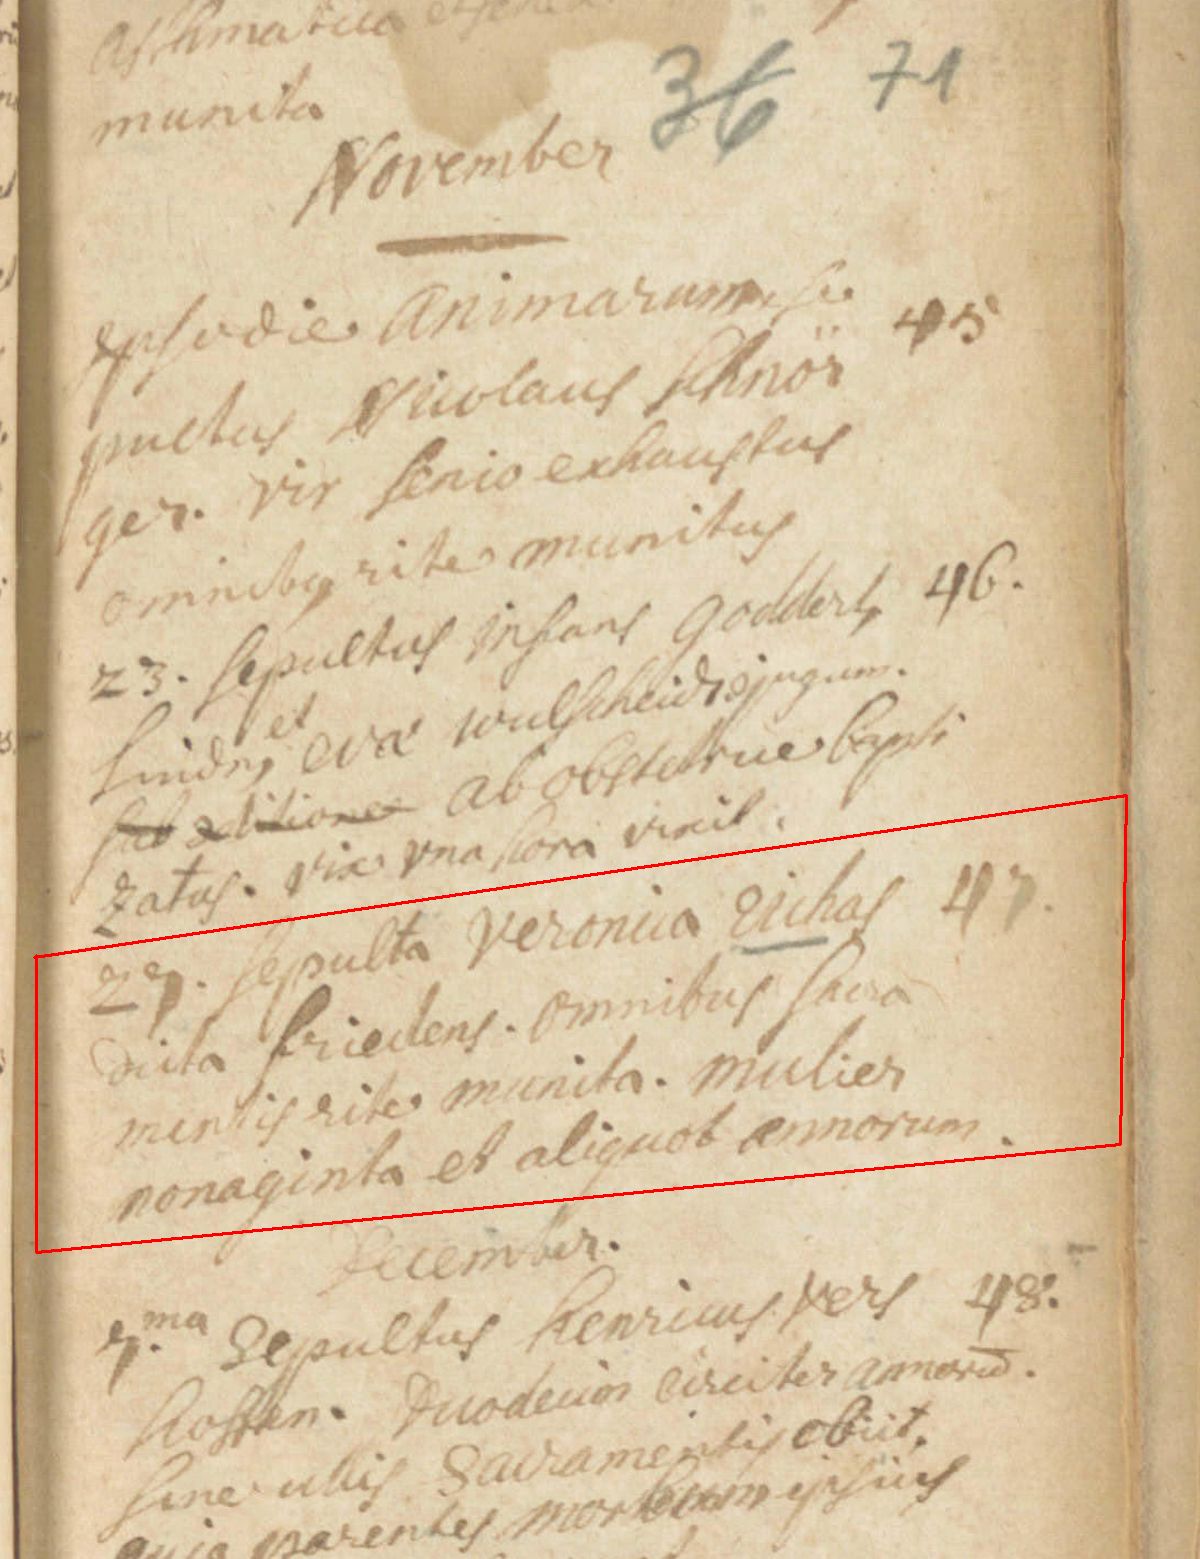 munita
36 71
November
ipso die Animarum se
pultus Nicolaus Schnör 45
ger. vir senio exhaustus
omnibus rite munitus
23. sepultus infans Godderts 46.
et
Linden evæ wulscheidt conjugum.
ab obstetrice bapti
zatus. vix vna hora vixit.
27. sepulta Veronica Eichas 47.
dicta friedens. omnibus sacra
mentis rite munita. mulier
nonaginta et aliquot annorum.
December.
7.ma Sepultus henricus vers 48.
hoffen. duodecim circiter annorū.
sine ullis Sacramentis obiit,
quia parentes morbum ipsius